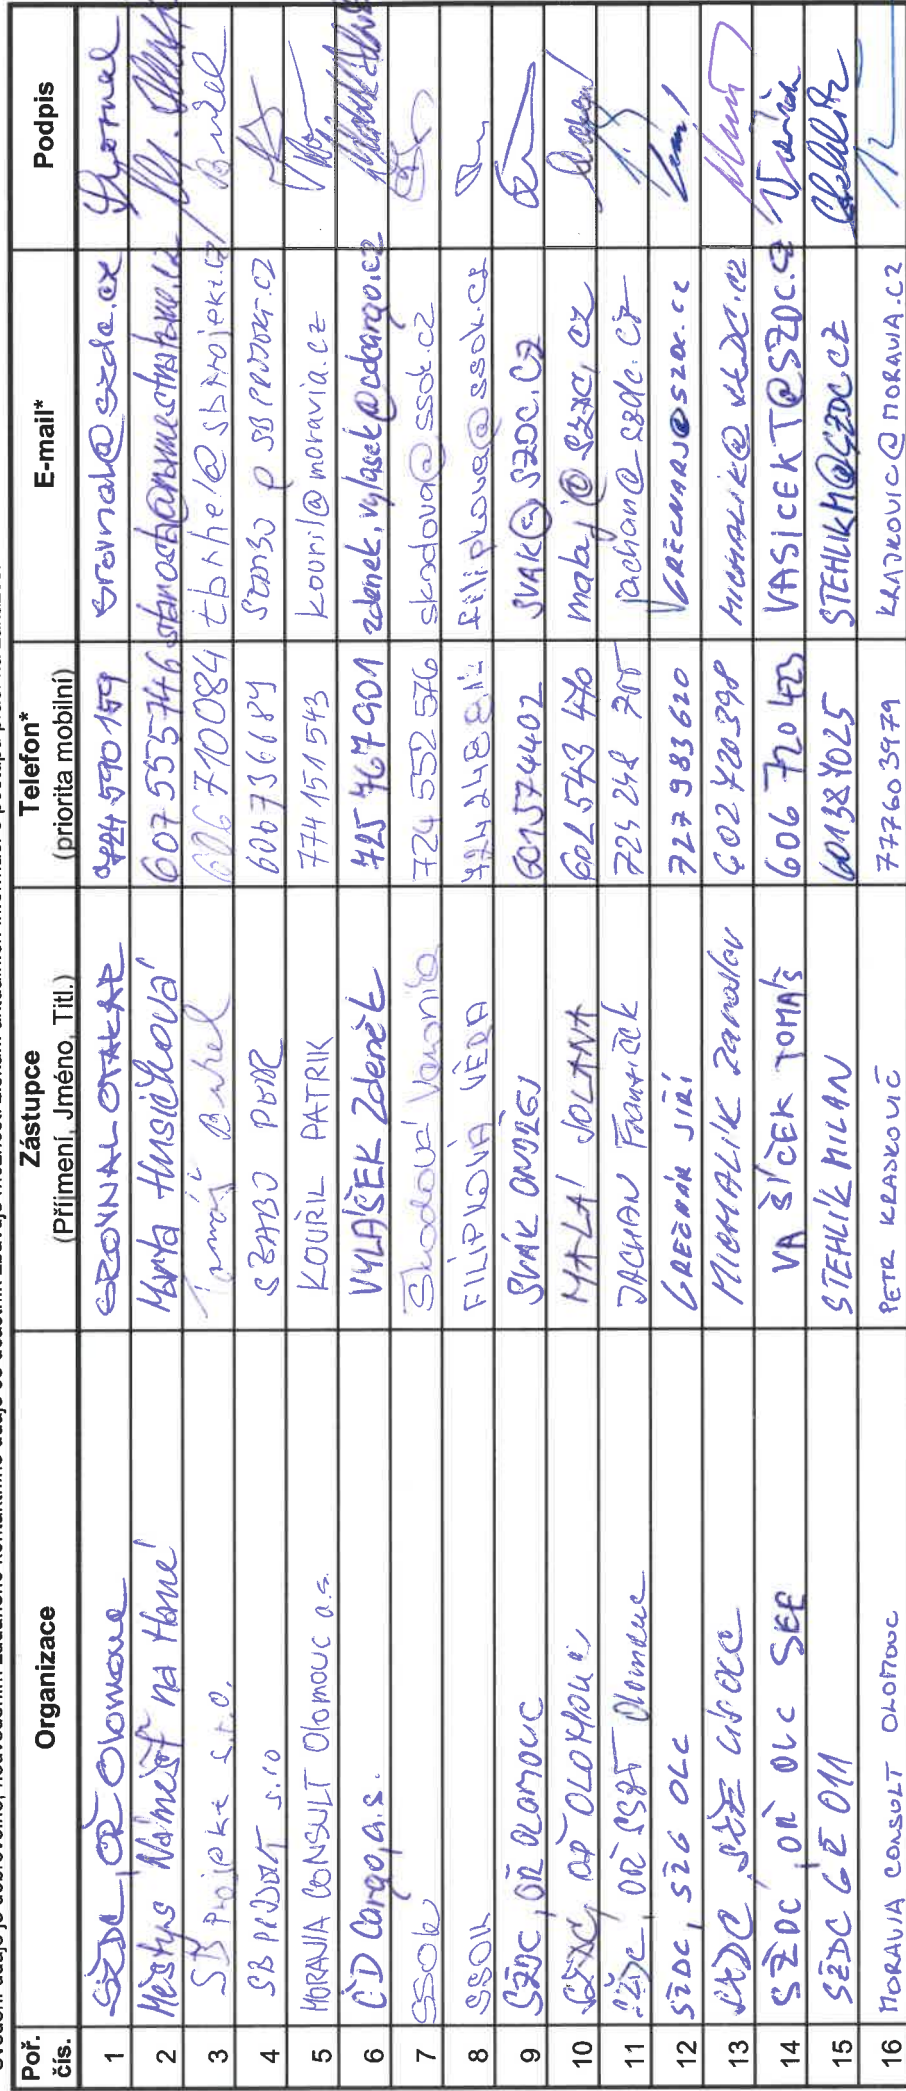 Poř. čís. Organizace Zástupce (Příjmení, Jméno, Titl.) Telefon* (priorita mobilní) E-mail* Podpis
1 SŽDC, OŘ Olomouc SROVNAL OTAKAR 590 159 srovnal@szdc.cz Srovnal
2 Městys Náměšť na Hané Marta Husičková 607 555 746
3 SB Projekt s.r.o. Tomáš Buhel 606710084 Buhel
4 SB PROJEKT s.r.o SZABO PETR 606736689
5 MORAVIA CONSULT Olomouc a.s. KOUŘIL PATRIK 774 151 543 kouril@moravia.cz
6 ČD Cargo, a.s. VYLAŠEK Zdeněk 725 767 901 zdenek.vylasek@cdcargo.cz
7 SSOK Škodová Veronika 724 552 576 skodova@ssok.cz
8 SSOK FILIPKOVÁ VĚRA filipkova@ssok.cz
9 SŽDC, OŘ OLOMOUC SVAK ONDŘEJ 601574402 SVAK@SZDC.CZ
10 SŽDC, OŘ OLOMOUC MALÁ JOLANA 602 543 470 malaj@szdc.cz
11 SŽDC, OŘ SSZT Olomouc JACHAN František jachan@szdc.cz
12 SŽDC, SŽG OLC GREČNÁR JIŘÍ 727983620 GRECNARJ@szdc.cz
13 MICHALÍK Jaroslav 602 720 398
14 SŽDC, OŘ OLC SEE VAŠÍČEK TOMÁŠ 606 720 423 VASICEKT@SZDC.CZ Vašíček
15 SŽDC GŘ O11 STEHLÍK MILAN STEHLIKM@SZDC.CZ Stehlík
16 MORAVIA CONSULT OLOMOUC PETR KRAJKOVIČ 777603979 KRAJKOVIC@MORAVIA.CZ